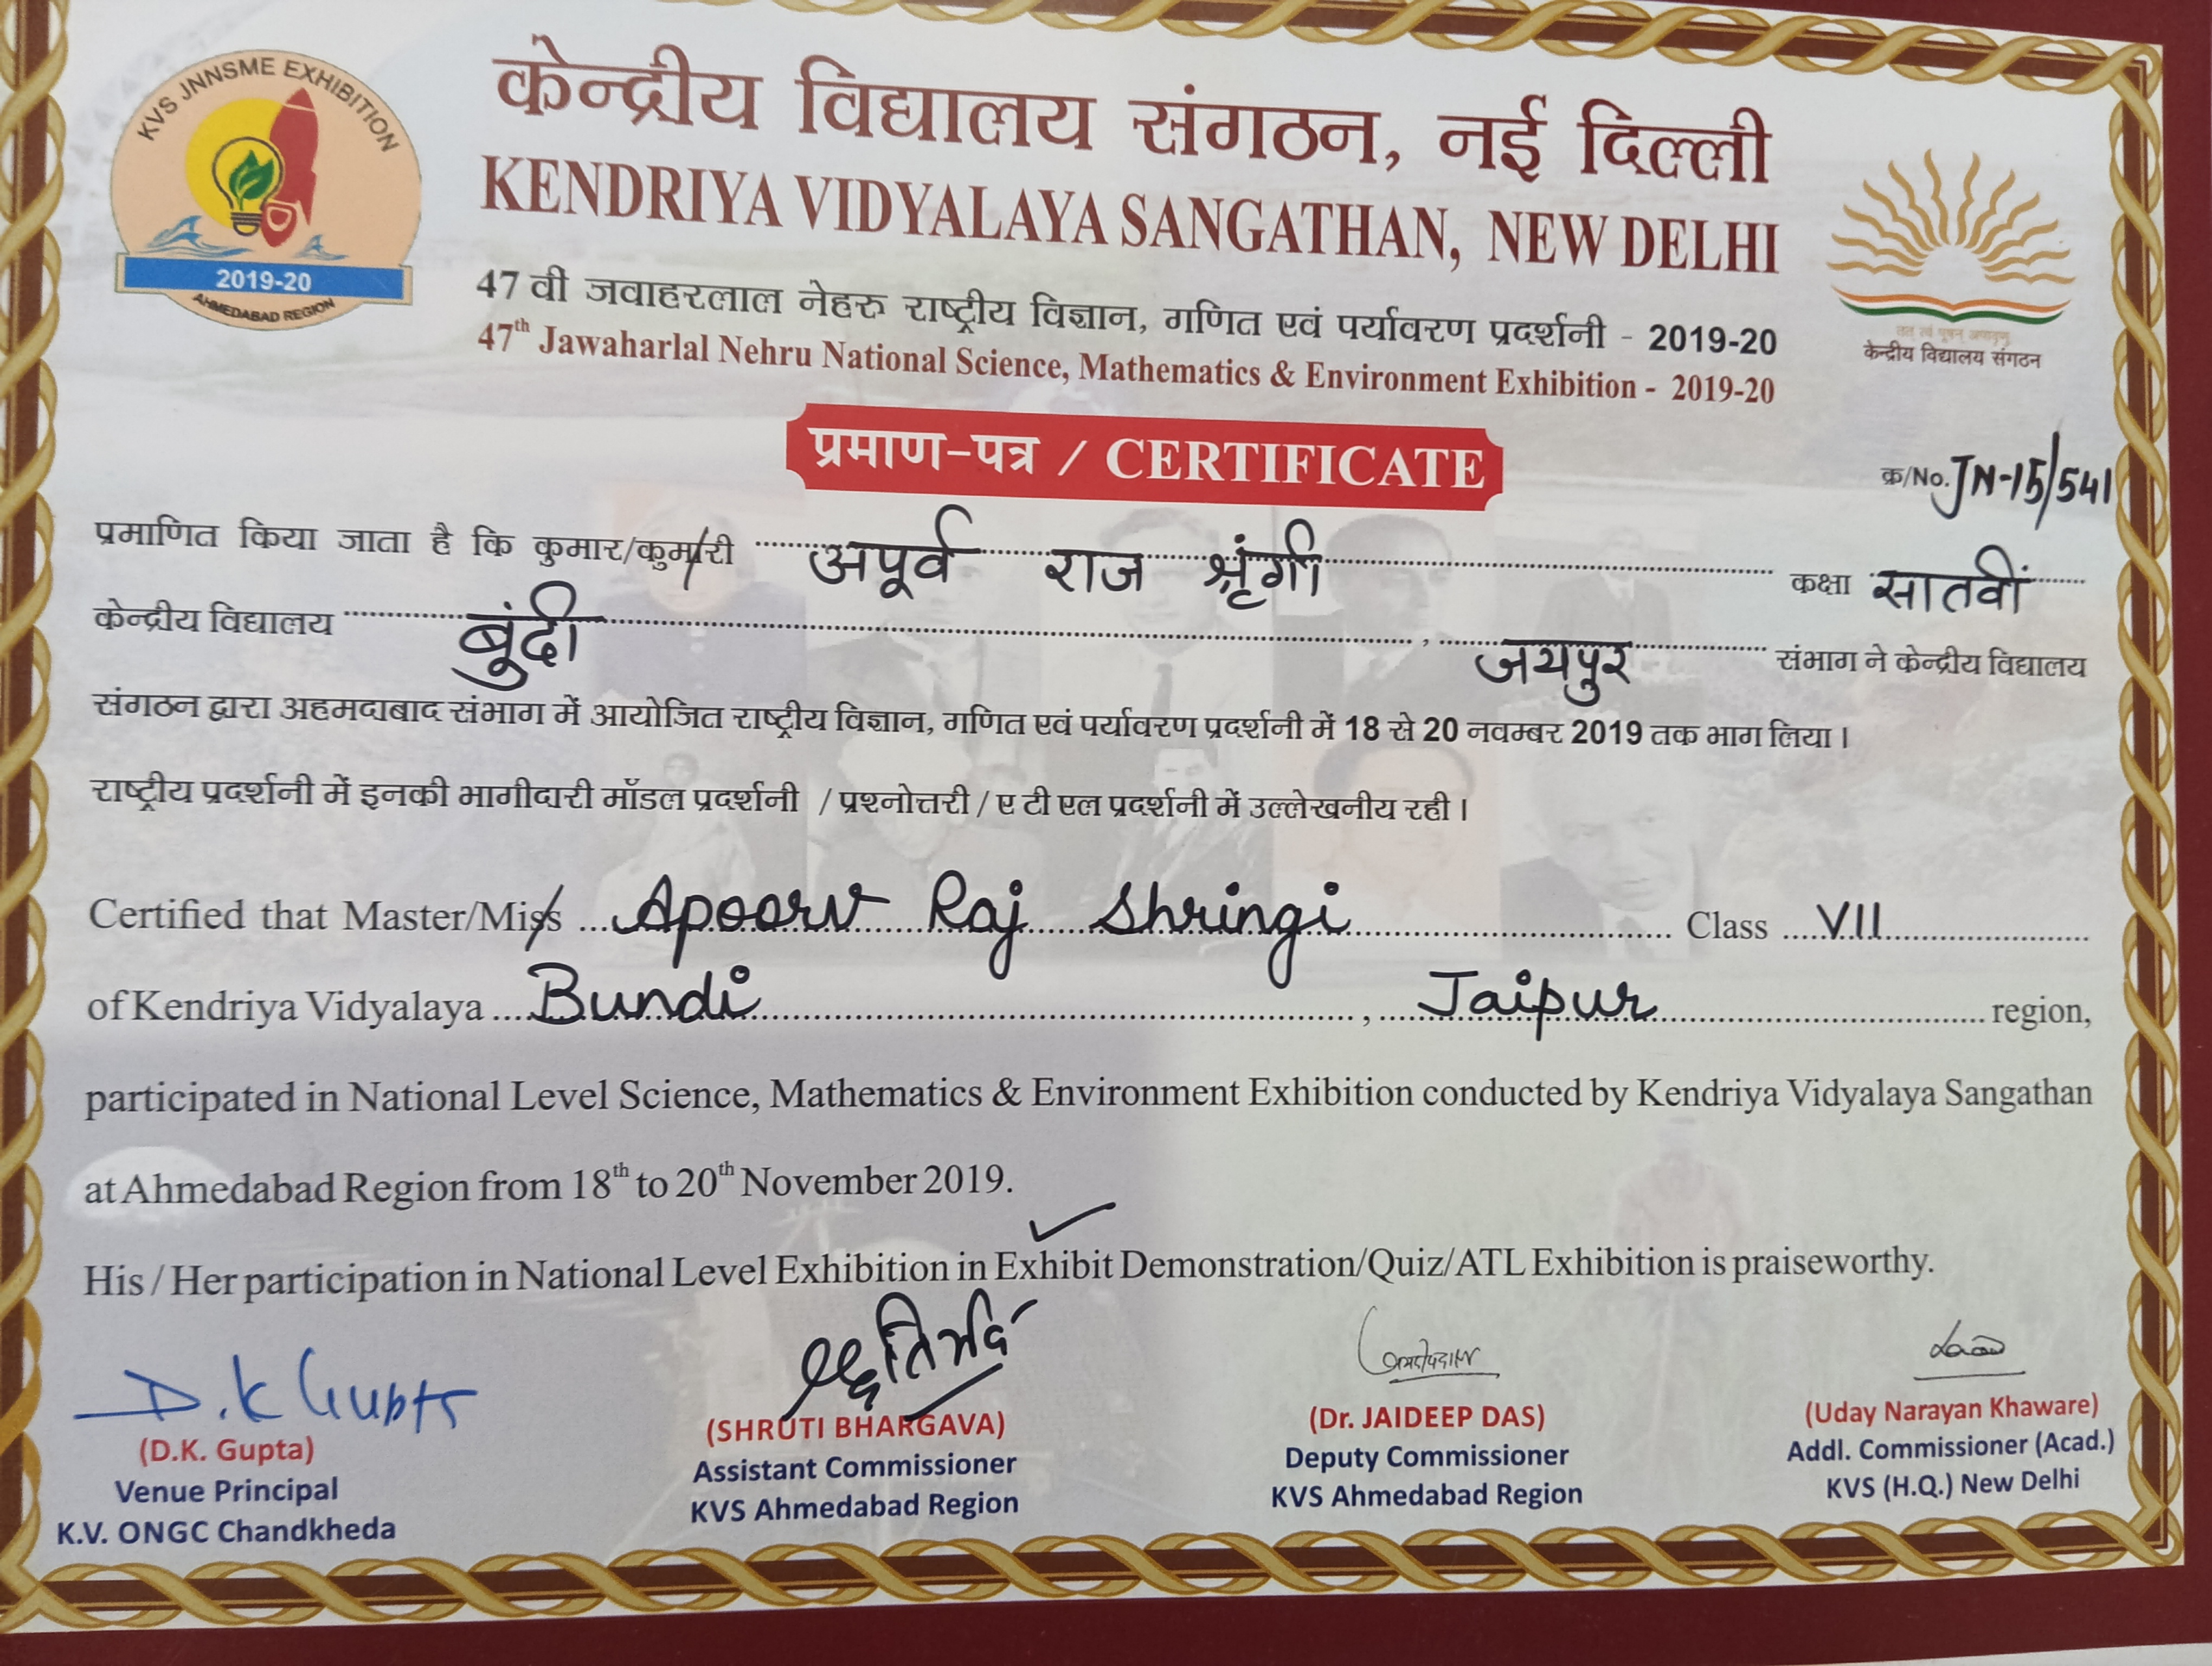 KVS JNNSME EXHIBITION
2019-20
AHMEDABAD REGION
केन्द्रीय विद्यालय संगठन, नई दिल्ली
KENDRIYA VIDYALAYA SANGATHAN, NEW DELHI
47 वी जवाहरलाल नेहरु राष्ट्रीय विज्ञान, गणित एवं पर्यावरण प्रदर्शनी - 2019-20
47th Jawaharlal Nehru National Science, Mathematics & Environment Exhibition - 2019-20
तत् त्वं पूषन् अपावृणु
केन्द्रीय विद्यालय संगठन
प्रमाण-पत्र / CERTIFICATE
क्र/No. JN-15/541
प्रमाणित किया जाता है कि कुमार/कुमारी अपूर्व राज श्रृंगी कक्षा सातवीं
केन्द्रीय विद्यालय बुंदी, जयपुर संभाग ने केन्द्रीय विद्यालय
संगठन द्वारा अहमदाबाद संभाग में आयोजित राष्ट्रीय विज्ञान, गणित एवं पर्यावरण प्रदर्शनी में 18 से 20 नवम्बर 2019 तक भाग लिया।
राष्ट्रीय प्रदर्शनी में इनकी भागीदारी मॉडल प्रदर्शनी / प्रश्नोत्तरी / ए टी एल प्रदर्शनी में उल्लेखनीय रही।
Certified that Master/Miss Apoorv Raj Shringi Class VII
of Kendriya Vidyalaya Bundi, Jaipur region,
participated in National Level Science, Mathematics & Environment Exhibition conducted by Kendriya Vidyalaya Sangathan
at Ahmedabad Region from 18th to 20th November 2019.
His / Her participation in National Level Exhibition in Exhibit Demonstration/Quiz/ATL Exhibition is praiseworthy.
D.K Gupta
(D.K. Gupta)
Venue Principal
K.V. ONGC Chandkheda
(SHRUTI BHARGAVA)
Assistant Commissioner
KVS Ahmedabad Region
(Dr. JAIDEEP DAS)
Deputy Commissioner
KVS Ahmedabad Region
(Uday Narayan Khaware)
Addl. Commissioner (Acad.)
KVS (H.Q.) New Delhi